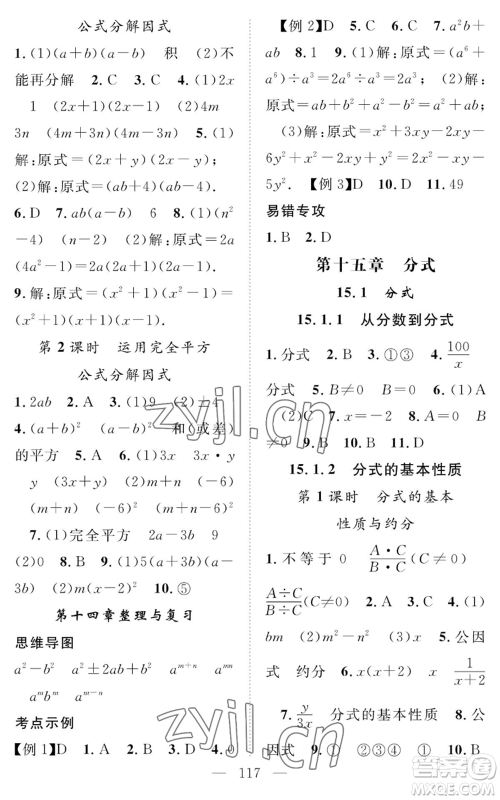 公式分解因式
1.(1)(a+b)(a-b)　积　(2)不
能再分解　2.C　3.C　4.(1)2x
1　(2x+1)(2x-1)　(2)4m
3n　(4m+3n)(4m-3n)　5.(1)
解:原式=(2x+y)(2x-y).　(2)
解:原式=(ab+4)(ab-4).
6.D　7.ab(a-b)　6　8.(1)(n²
-4)　(n-2)　(2)解:原式=2a
(4a²-1)=2a(2a+1)(2a-1).
9.解:原式=(x²+1)(x²-1)=
(x²+1)(x+1)(x-1).
第2课时　运用完全平方
公式分解因式
1.2ab　2.A　3.(1)9　(2)±4
4.(a+b)²　(a-b)²　和(或差)
的平方　5.A　6.(1)3x　3x·y
y　(3x+y)²　(2)(m+n)²
(m+n)　(-6)²　(m+n-6)²
7.(1)完全平方　2a-3b　9
(2)0　8.D　9.(1)5(a+b)²
(2)b(2a-b)²　10.⑤
第十四章整理与复习
思维导图
a²-b²　a²±2ab+b²　aᵐ⁺ⁿ
aᵐbᵐ　aᵐ⁻ⁿ
考点示例
【例1】D　1.A　2.D　3.D　4.0
【例2】(1)解:原式=a²·a⁴÷
a³
(2)解:
原式=ab+b²+a²-ab=a²+b².
(3)解:原式=x²+3xy-2xy-
6y²+x²-xy+xy-y²=2x²+xy-
【例3】D　10.D　11.49
易错专攻
1.B　2.D
第十五章　分式
15.1　分式
15.1.1　从分数到分式
1.分式　2.B　3.①③　4.100/x
分式　5.B≠0　B≠0　6.(1)A
7.x=-2　8.C
15.1.2　分式的基本性质
第1课时　分式的基本
性质与约分
1.不等于　0　(A·C)/(B·C)
(A÷C)/(B÷C)(C≠0)　2.A　3.C　4.(1)
bm　(2)m　5.C　6.公因
式　约分　x　1/(x+2)
7.y/3x　8.公
因式　9.①　②③④　①　10.D
117
zyjl.cn
zyjl.cn